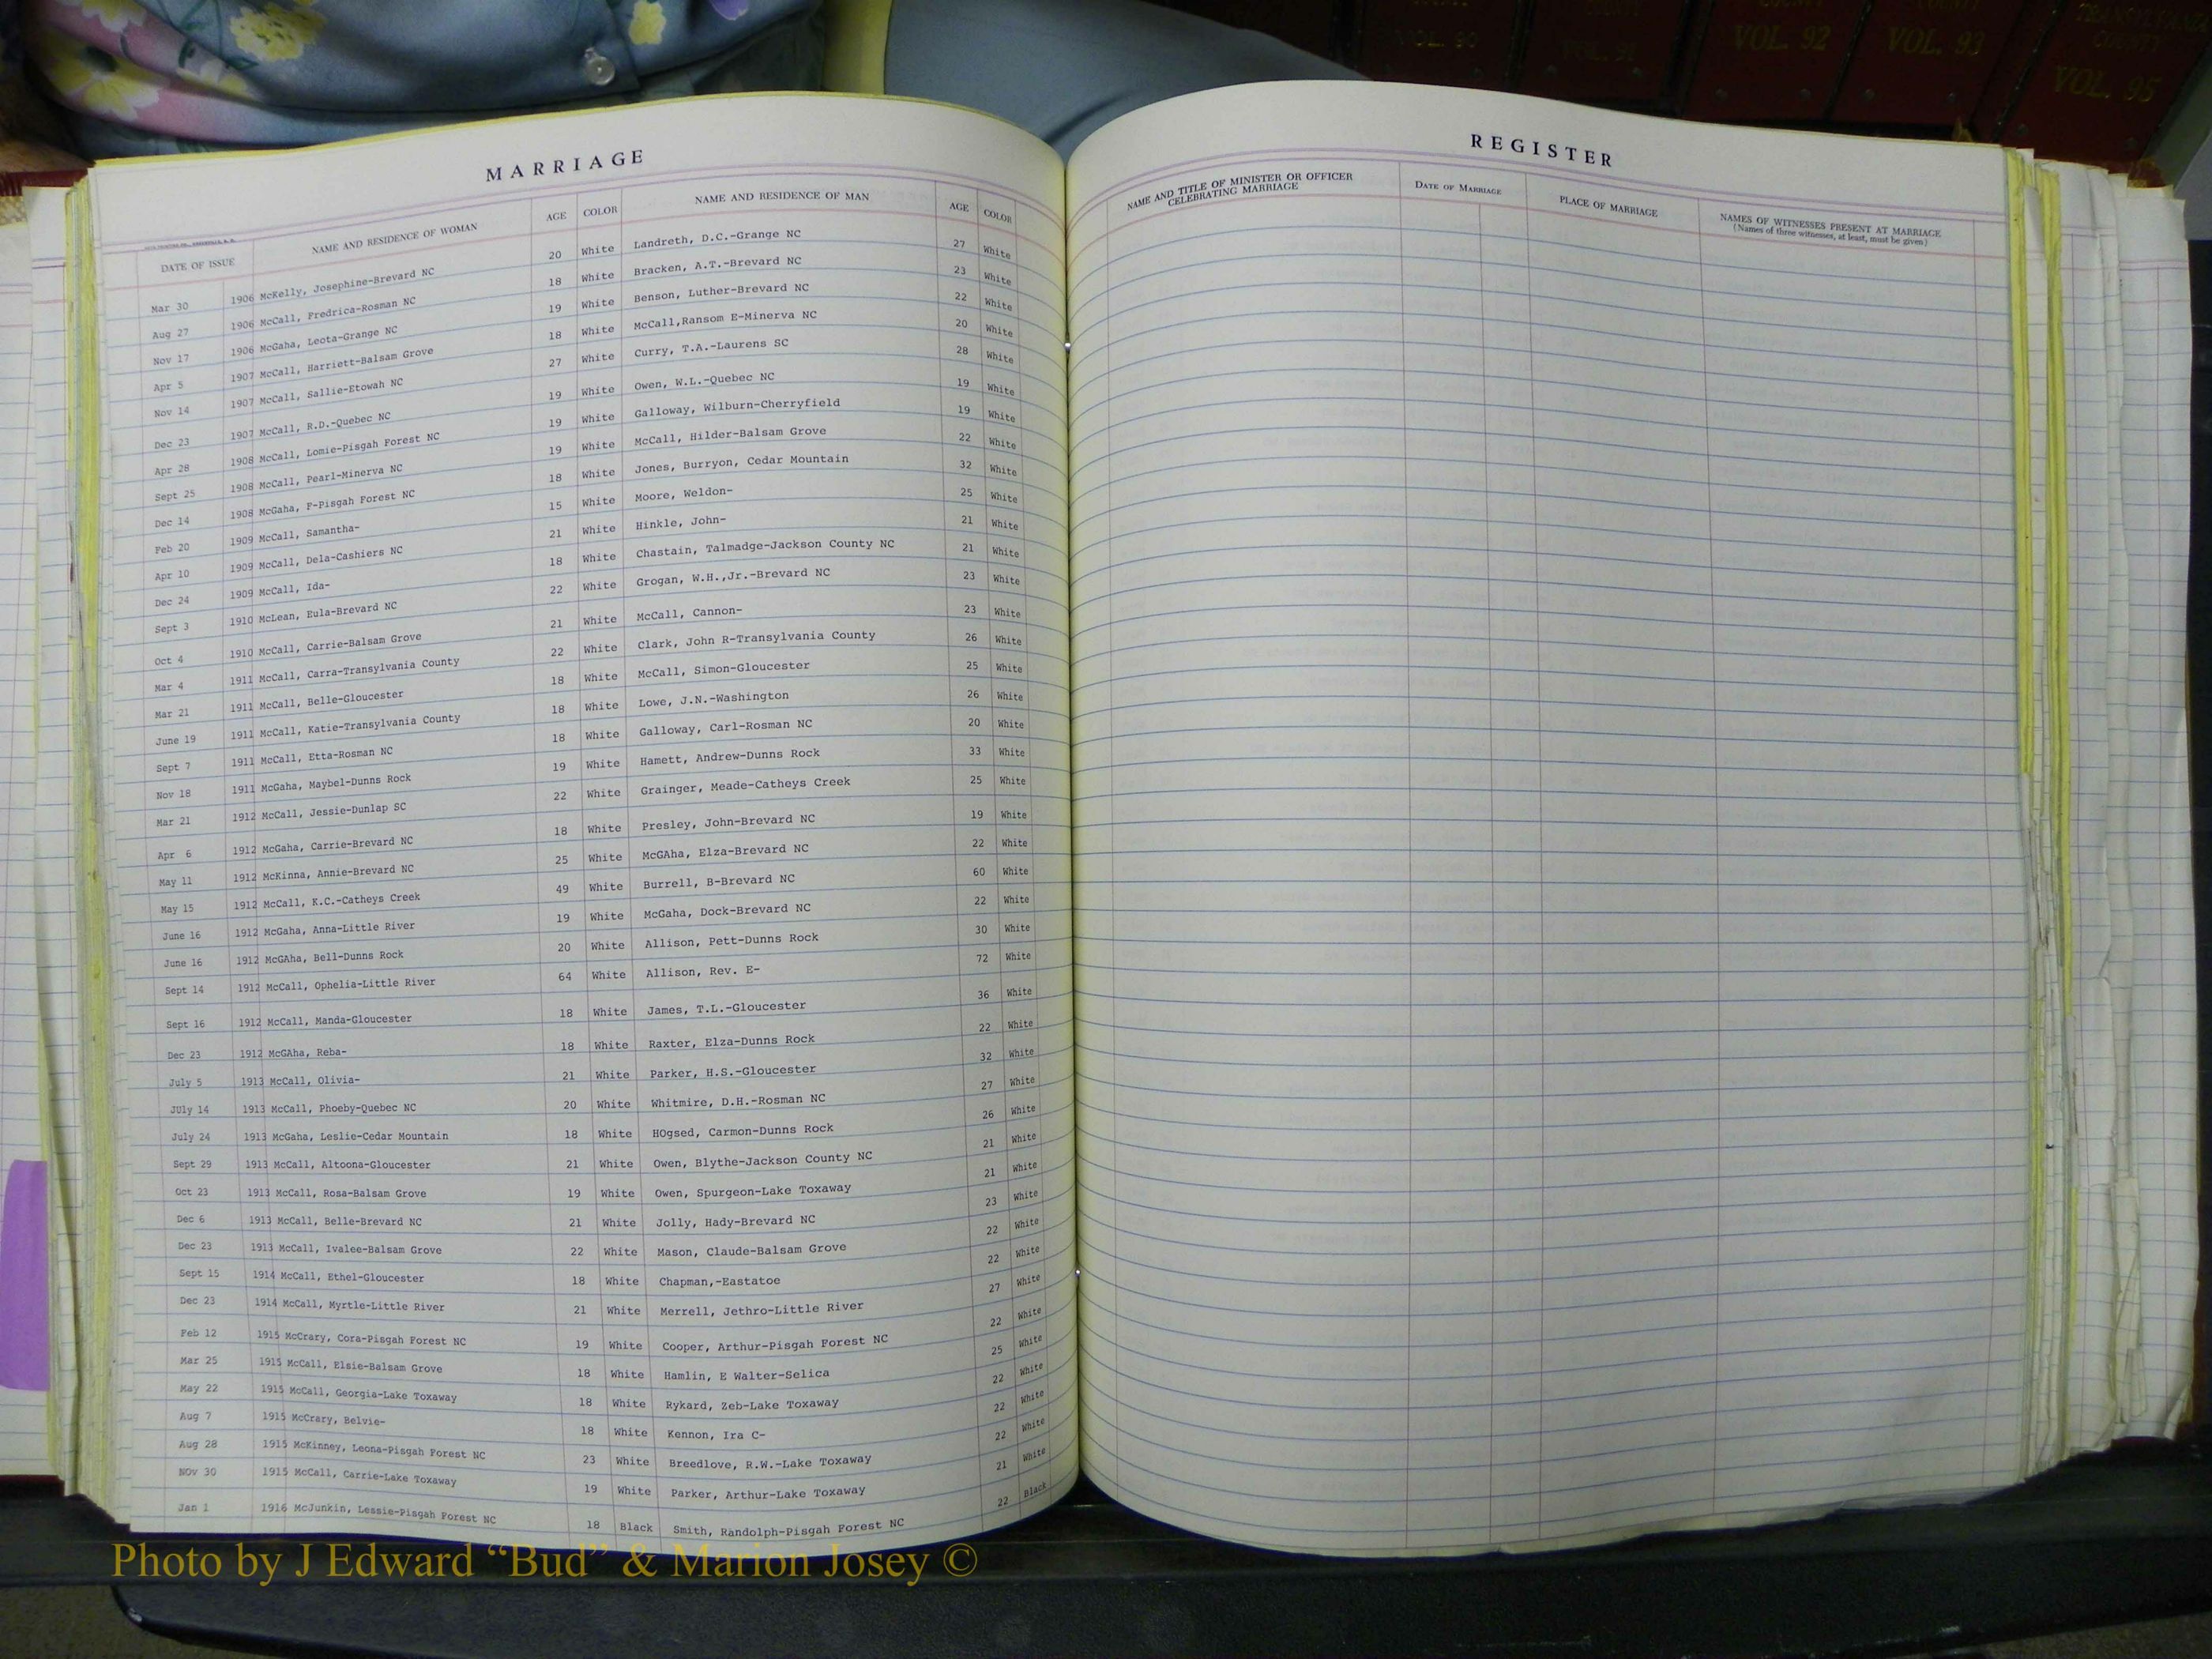 COUNTY
VOL. 90
VOL. 91
COUNTY
VOL. 92
COUNTY
VOL. 93
TRANSYLVANIA
COUNTY
VOL. 95
MARRIAGE
DATE OF ISSUE NAME AND RESIDENCE OF WOMAN AGE COLOR NAME AND RESIDENCE OF MAN AGE COLOR
Mar 30 1906 McKelly, Josephine-Brevard NC 20 White Landreth, D.C.-Grange NC 27 White
Aug 27 1906 McCall, Fredrica-Rosman NC 18 White Bracken, A.T.-Brevard NC 23 White
Nov 17 1906 McGaha, Leota-Grange NC 19 White Benson, Luther-Brevard NC 22 White
Apr 5 1907 McCall, Harriett-Balsam Grove 18 White McCall,Ransom E-Minerva NC 20 White
Nov 14 1907 McCall, Sallie-Etowah NC 27 White Curry, T.A.-Laurens SC 28 White
Dec 23 1907 McCall, R.D.-Quebec NC 19 White Owen, W.L.-Quebec NC 19 White
Apr 28 1908 McCall, Lomie-Pisgah Forest NC 19 White Galloway, Wilburn-Cherryfield 19 White
Sept 25 1908 McCall, Pearl-Minerva NC 19 White McCall, Hilder-Balsam Grove 22 White
Dec 14 1908 McGaha, F-Pisgah Forest NC 18 White Jones, Burryon, Cedar Mountain 32 White
Feb 20 1909 McCall, Samantha- 15 White Moore, Weldon- 25 White
Apr 10 1909 McCall, Dela-Cashiers NC 21 White Hinkle, John- 21 White
Dec 24 1909 McCall, Ida- 18 White Chastain, Talmadge-Jackson County NC 21 White
Sept 3 1910 McLean, Eula-Brevard NC 22 White Grogan, W.H.,Jr.-Brevard NC 23 White
Oct 4 1910 McCall, Carrie-Balsam Grove 21 White McCall, Cannon- 23 White
Mar 4 1911 McCall, Carra-Transylvania County 22 White Clark, John R-Transylvania County 26 White
Mar 21 1911 McCall, Belle-Gloucester 18 White McCall, Simon-Gloucester 25 White
June 19 1911 McCall, Katie-Transylvania County 18 White Lowe, J.N.-Washington 26 White
Sept 7 1911 McCall, Etta-Rosman NC 18 White Galloway, Carl-Rosman NC 20 White
Nov 18 1911 McGaha, Maybel-Dunns Rock 19 White Hamett, Andrew-Dunns Rock 33 White
Mar 21 1912 McCall, Jessie-Dunlap SC 22 White Grainger, Meade-Catheys Creek 25 White
Apr 6 1912 McGaha, Carrie-Brevard NC 18 White Presley, John-Brevard NC 19 White
May 11 1912 McKinna, Annie-Brevard NC 25 White McGAha, Elza-Brevard NC 22 White
May 15 1912 McCall, K.C.-Catheys Creek 49 White Burrell, B-Brevard NC 60 White
June 16 1912 McGaha, Anna-Little River 19 White McGaha, Dock-Brevard NC 22 White
June 16 1912 McGAha, Bell-Dunns Rock 20 White Allison, Pett-Dunns Rock 30 White
Sept 14 1912 McCall, Ophelia-Little River 64 White Allison, Rev. E- 72 White
Sept 16 1912 McCall, Manda-Gloucester 18 White James, T.L.-Gloucester 36 White
Dec 23 1912 McGAha, Reba- 18 White Raxter, Elza-Dunns Rock 22 White
July 5 1913 McCall, Olivia- 21 White Parker, H.S.-Gloucester 32 White
JUly 14 1913 McCall, Phoeby-Quebec NC 20 White Whitmire, D.H.-Rosman NC 27 White
July 24 1913 McGaha, Leslie-Cedar Mountain 18 White HOgsed, Carmon-Dunns Rock 26 White
Sept 29 1913 McCall, Altoona-Gloucester 21 White Owen, Blythe-Jackson County NC 21 White
Oct 23 1913 McCall, Rosa-Balsam Grove 19 White Owen, Spurgeon-Lake Toxaway 21 White
Dec 6 1913 McCall, Belle-Brevard NC 21 White Jolly, Hady-Brevard NC 23 White
Dec 23 1913 McCall, Ivalee-Balsam Grove 22 White Mason, Claude-Balsam Grove 22 White
Sept 15 1914 McCall, Ethel-Gloucester 18 White Chapman,-Eastatoe 22 White
Dec 23 1914 McCall, Myrtle-Little River 21 White Merrell, Jethro-Little River 27 White
Feb 12 1915 McCrary, Cora-Pisgah Forest NC 19 White Cooper, Arthur-Pisgah Forest NC 22 White
Mar 25 1915 McCall, Elsie-Balsam Grove 18 White Hamlin, E Walter-Selica 25 White
May 22 1915 McCall, Georgia-Lake Toxaway 18 White Rykard, Zeb-Lake Toxaway 22 White
Aug 7 1915 McCrary, Belvie- 18 White Kennon, Ira C- 22 White
Aug 28 1915 McKinney, Leona-Pisgah Forest NC 23 White Breedlove, R.W.-Lake Toxaway 22 White
NOV 30 1915 McCall, Carrie-Lake Toxaway 19 White Parker, Arthur-Lake Toxaway 21 White
Jan 1 1916 McJunkin, Lessie-Pisgah Forest NC 18 Black Smith, Randolph-Pisgah Forest NC 22 Black
REGISTER
NAME AND TITLE OF MINISTER OR OFFICER CELEBRATING MARRIAGE DATE OF MARRIAGE PLACE OF MARRIAGE NAMES OF WITNESSES PRESENT AT MARRIAGE
(Names of three witnesses, at least, must be given)
Photo by J Edward “Bud” & Marion Josey ©